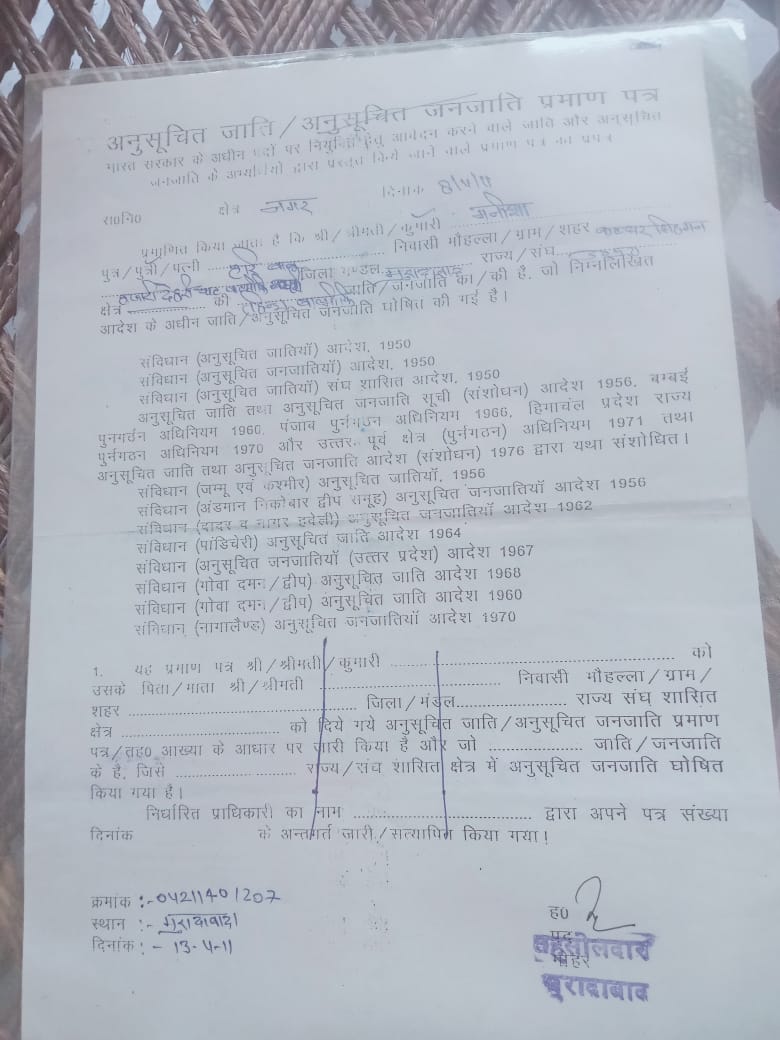 अनुसूचित जाति / अनुसूचित जनजाति प्रमाण पत्र
भारत सरकार के अधीन पदों पर नियुक्ति हेतु आवेदन करने वाले जाति और अनुसूचित
जनजाति के अभ्यर्थियो द्वारा प्रस्तुत किये जाने वाले प्रमाण पत्र का प्रपत्र
रा०नि० क्षेत्र नगर दिनांक
प्रमाणित किया जाता है कि श्री / श्रीमती / कुमारी मनीषा
पुत्र / पुत्री / पत्नी हरि बाबू निवासी मौहल्ला / ग्राम / शहर
जिला मण्डल मुरादाबाद राज्य / संघ
क्षेत्र की जाति / जनजाति का / की है, जो निम्नलिखित
आदेश के अधीन जाति / अनुसूचित जनजाति घोषित की गई है।
संविधान (अनुसूचित जातियॉ) आदेश, 1950
संविधान (अनुसूचित जनजातियॉ) आदेश, 1950
संविधान (अनुसूचित जातियॉ) संघ शासित आदेश, 1950
अनुसूचित जाति तथा अनुसूचित जनजाति सूची (संशोधन) आदेश 1956, बम्बई
पुनगर्ठन अधिनियम 1960, पंजाव पुर्नगठन अधिनियम 1966, हिमाचंल प्रदेश राज्य
पुर्नगठन अधिनियम 1970 और उत्तर पूर्व क्षेत्र (पुर्नगठन) अधिनियम 1971 तथा
अनुसूचित जाति तथा अनुसूचित जनजाति आदेश (संशोधन) 1976 द्वारा यथा संशोधित।
संविधान (जम्मू एवं कश्मीर) अनुसूचित जातियॉ, 1956
संविधान (अंडमान निकोबार द्वीप समूह) अनुसूचित जनजातियॉ आदेश 1956
संविधान (दादर व नागर हवेली) अनुसूचित जनजातियॉ आदेश 1962
संविधान (पांडिचेरी) अनुसूचित जाति आदेश 1964
संविधान (अनुसूचित जनजातियॉ (उत्तर प्रदेश) आदेश 1967
संविधान (गोवा दमन / द्वीप) अनुसूचित जाति आदेश 1968
संविधान (गोवा दमन / द्वीप) अनुसूचित जाति आदेश 1960
संविधान (नागालैण्ड) अनुसूचित जनजातियॉ आदेश 1970
1. यह प्रमाण पत्र श्री / श्रीमती / कुमारी को
उसके पिता / माता श्री / श्रीमती निवासी मौहल्ला / ग्राम /
शहर जिला / मंडल राज्य संघ शासित
क्षेत्र को दिये गये अनुसूचित जाति / अनुसूचित जनजाति प्रमाण
पत्र / तह० आख्या के आधार पर जारी किया है और जो जाति / जनजाति
के है, जिसे राज्य / संघ शासित क्षेत्र में अनुसूचित जनजाति घोषित
किया गया है।
निर्धारित प्राधिकारी का नाम द्वारा अपने पत्र संख्या
दिनांक के अन्तगर्त जारी / सत्यापित किया गया!
क्रमांक :- 04211401207
स्थान :- मुरादाबाद
दिनांक : - 13-4-11
ह०
पद
मोहर
तहसीलदार
मुरादाबाद